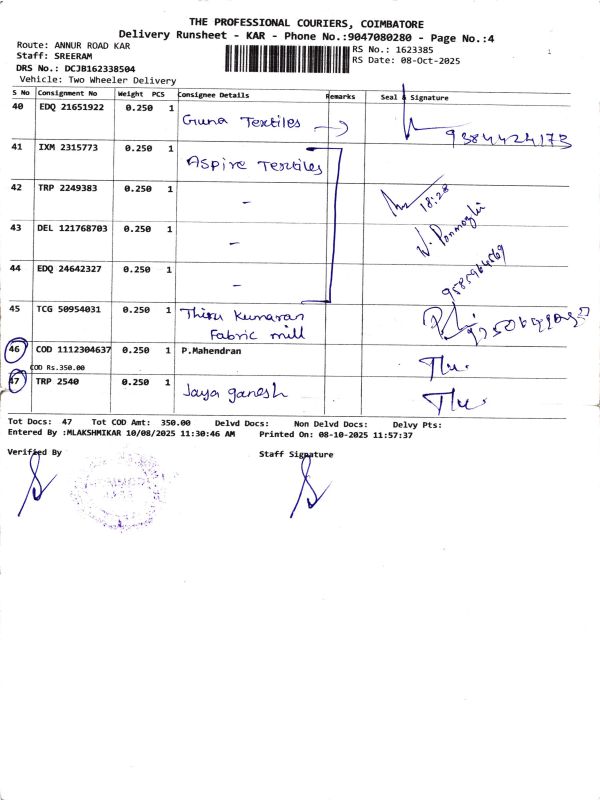 THE PROFESSIONAL COURIERS, COIMBATORE
Delivery Runsheet - KAR - Phone No.:9047080280 - Page No.:4
Route: ANNUR ROAD KAR
RS No.: 1623385
1
Staff: SREERAM
RS Date: 08-Oct-2025
DRS No.: DCJB162338504
Vehicle: Two Wheeler Delivery
S No Consignment No Weight PCS Consignee Details Remarks Seal & Signature
40 EDQ 21651922 0.250 1 Guna Textiles 9384424173
41 IXM 2315773 0.250 1 Aspire Textiles
42 TRP 2249383 0.250 1 - 18:28
43 DEL 121768703 0.250 1 - N. Ponmozhi
44 EDQ 24642327 0.250 1 -
45 TCG 50954031 0.250 1 Thiru Kumaran
Fabric mill
46 COD 1112304637 0.250 1 P.Mahendran
COD Rs.350.00
47 TRP 2540 0.250 1 Jaya ganesh
Tot Docs: 47 Tot COD Amt: 350.00 Delvd Docs: Non Delvd Docs: Delvy Pts:
Entered By :MLAKSHMIKAR 10/08/2025 11:30:46 AM Printed On: 08-10-2025 11:57:37
Verified By Staff Signature